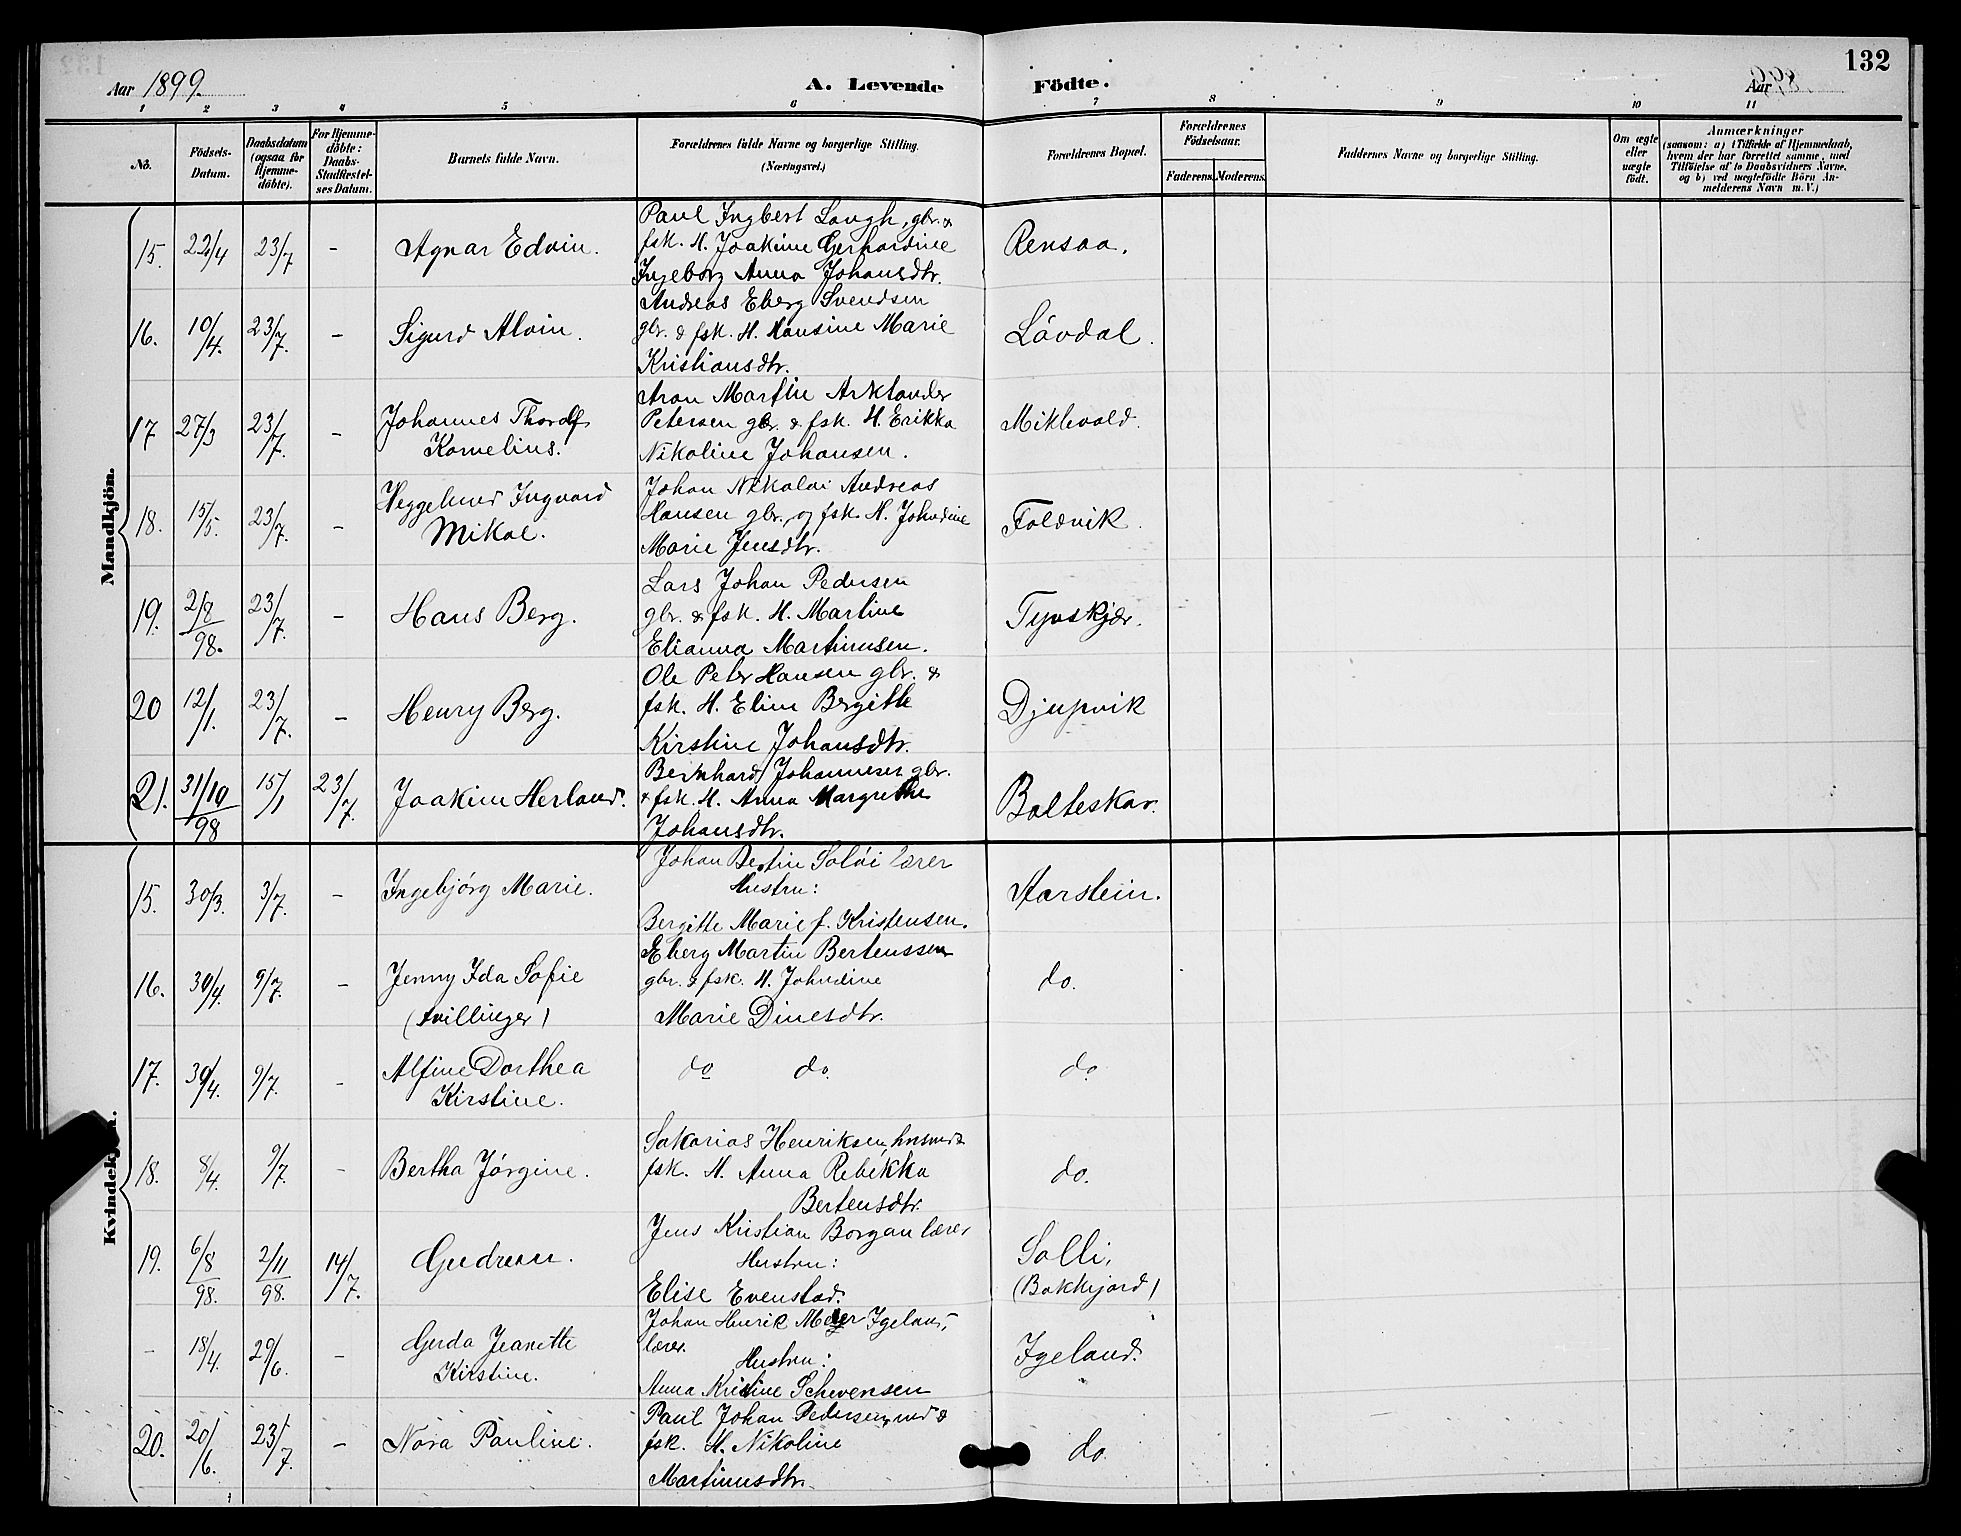 132
Aar 1899. A. Levende Födte. Aar
1 2 3 4 5 6 7 8 9 10 11
No. Födsels-Datum. Daabsdatum (ogsaa for Hjemmedöbte). For Hjemmedöbte: Daabs-Stadfæstelses Datum. Barnets fulde Navn. Forældrenes fulde Navne og borgerlige Stilling. (Næringsvei.) Forældrenes Bopæl. Forældrenes Födselsaar. Faderens. Moderens. Faddernes Navne og borgerlige Stilling. Om ægte eller uægte født. Anmærkninger (saasom: a) i Tilfælde af Hjemmedaab, hvem der har forrettet samme, med Tilföielse af to Daabsvidners Navne, og b) ved uægtefödte Börn Anmelderens Navn m.V.)
Mandkjön.
15. 22/4 23/7 - Agnar Edvin. Paul Ingbert Laugh, gbr. &
fsk. H. Joakime Gerhardine Rensaa.
Ingeborg Anna Johansdtr.
16. 10/4. 23/7. - Sigurd Alvin. Andreas Eberg Svendsen
gbr. & fsk. H. Hansine Marie Lövdal.
Kristiansdtr.
17 27/3 23/7. - Johannes Thoralf Aron Martin Arktander
Kornelius. Petersen gbr. & fsk. H. Erikka Miklevold.
Nikoline Johansen.
18. 15/5. 23/7. - Heggelund Ingvard Johan Nikolai Andreas
Mikal. Hansen gbr., og fsk. H. Johndine Foldvik.
Marie Jensdtr.
19. 2/8 98. 23/7. - Hans Berg. Lars Johan Pedersen
gbr. & fsk. H. Martine Tyvskjær.
Elianna Martinusen.
20 12/1. 23/7. - Henry Berg. Ole Peter Hansen gbr. &
fsk. H. Eline Bergitte Djupvik
Kirstine Johansdtr.
21. 31/10 98 15/1 23/7. Joakim Herland. Bernhard Johannesen gbr.
& fsk. H. Anna Margrethe Balteskar.
Johansdtr.
Kvindekjön.
15. 30/3. 3/7. - Ingebjörg Marie. Johan Bertin Solöi lærer
Hustru: Aarstein.
Bergitte Marie f. Kristensen.
16. 30/4. 9/7. - Jenny Ida Sofie Eberg Martin Bertenssen
(tvillinger) gbr. & fsk. H. Johndine do.
Marie Dinesdtr.
17. 30/4. 9/7. - Alfine Dorthea do do. do
Kirstine.
18. 8/4. 9/7. - Bertha Jörgine. Sakarias Henriksen, husmd &
fsk. H. Anna Rebekka do.
Bertensdtr.
19. 6/8 98. 2/11 98. 14/7. Gudrun. Jens Kristian Borgan lærer
Hustru: Solli,
Elise Evenstad. (Bakkejord)
- 18/4. 29/6. - Gerda Jeanette Johan Henrik Meyer Igeland,
Kirstine. lærer. Hustru: Igeland.
Anna Kristine Schevensen
20. 20/6. 23/7. - Nora Pauline. Paul Johan Pedersen, ind &
fsk. H. Nikoline do.
Martinusdtr.